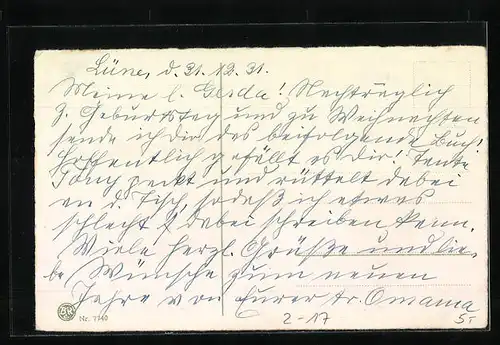 Lüne, d. 31. 12. 31.
Meine l. Gerda! Nachträglich
z. Geburtstag und zu Weihnachten
sende ich dir das beifolgende Buch!
Hoffentlich gefällt es dir! Tante
Tony packt und rüttelt dabei
an d. Tisch sodaß ich etwas
schlecht dabei schreiben kann.
Viele herzl. Grüße und lie-
be Wünsche zum neuen
Jahre von Eurer tr. Omama
Nr. 1140
2-17
5.-